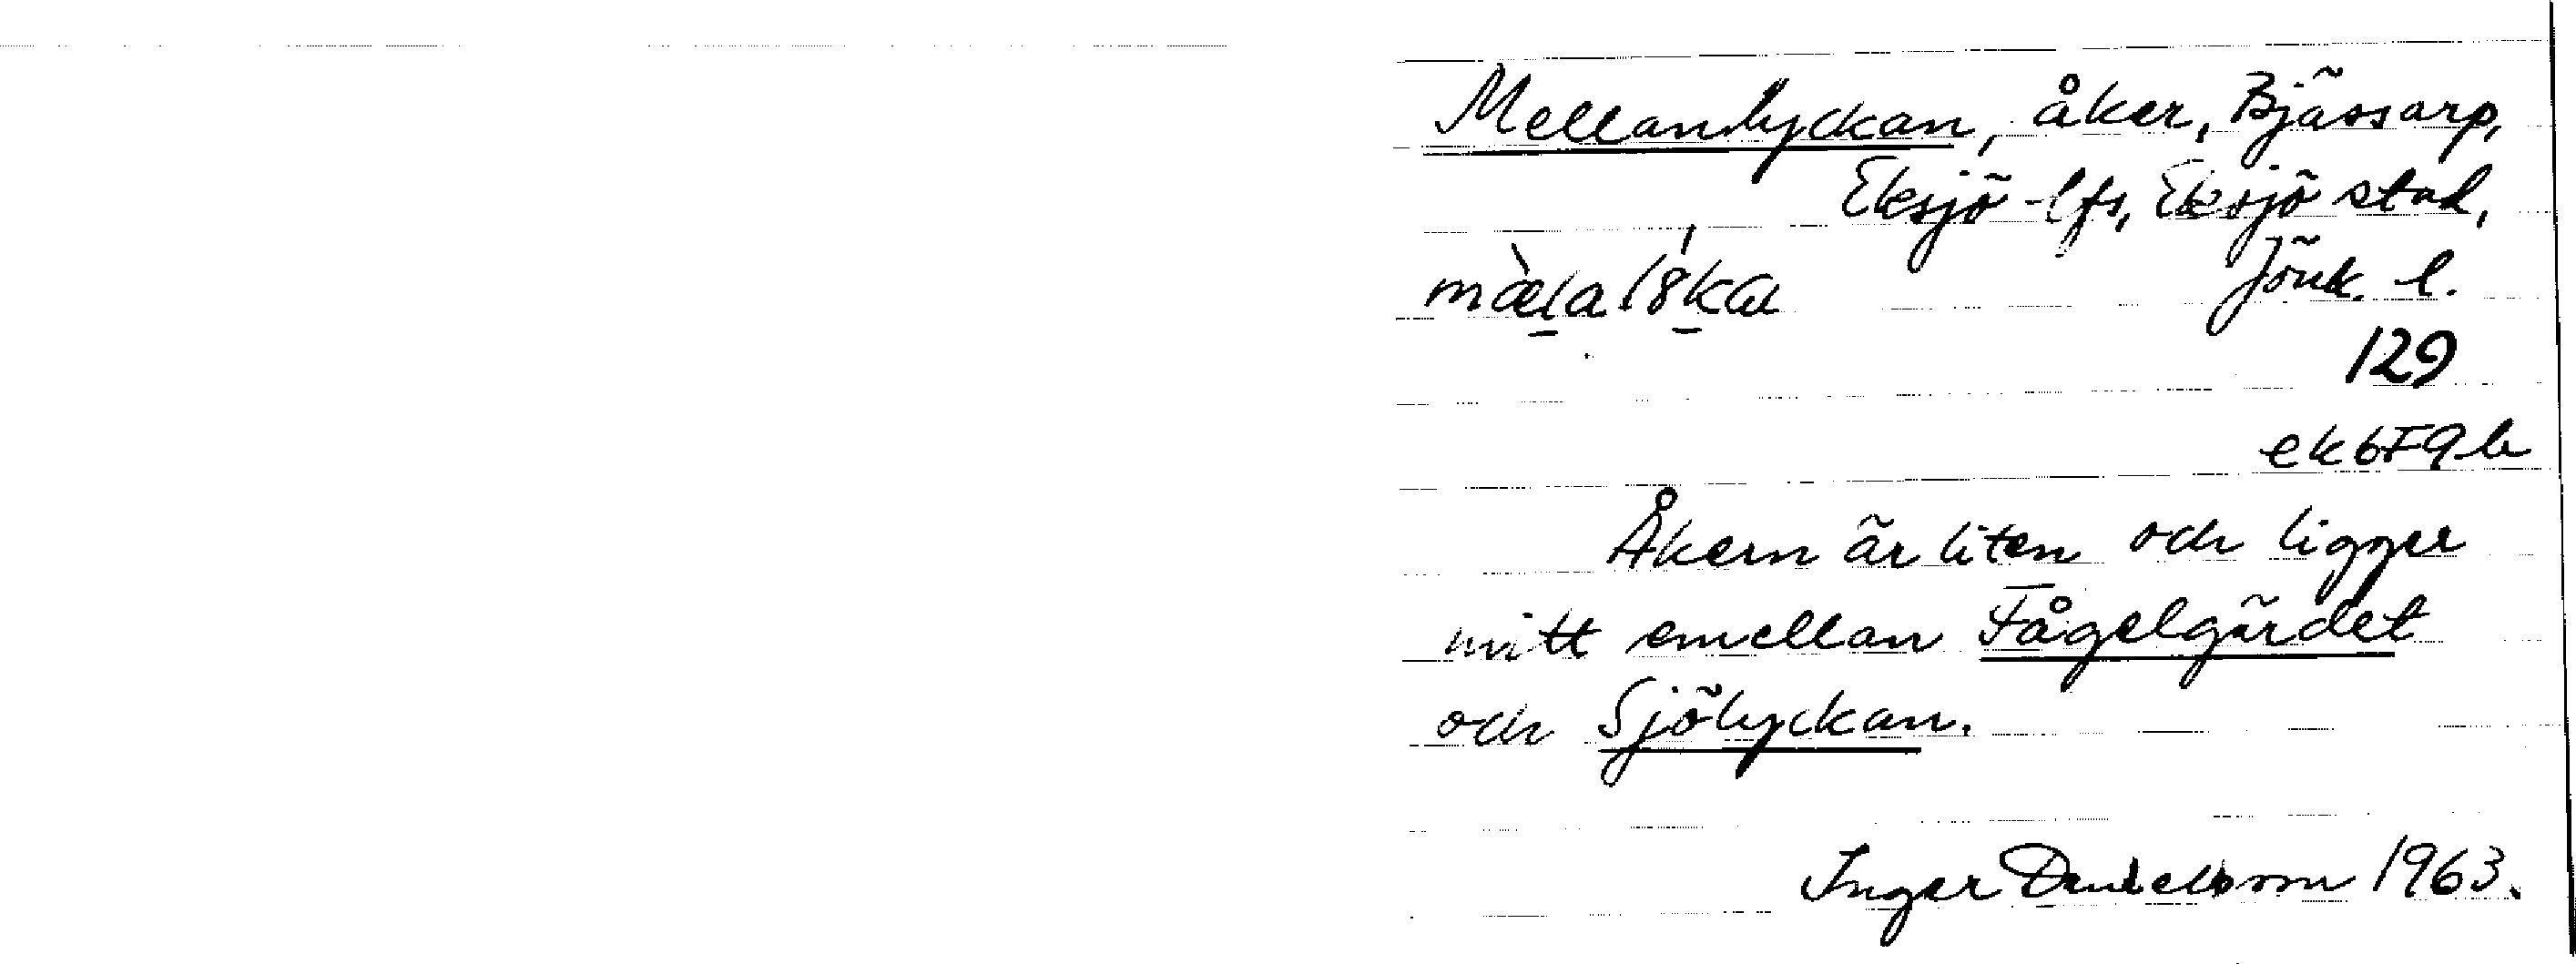 Mellanlyckan, åker, Bjässarp,
Eksjö lfs, Eksjö stad,
Jönk. l.
129
ek 6F9b
Åkern är liten och ligger
mitt emellan Fågelgärdet
och Sjölyckan.
Inger 1963.